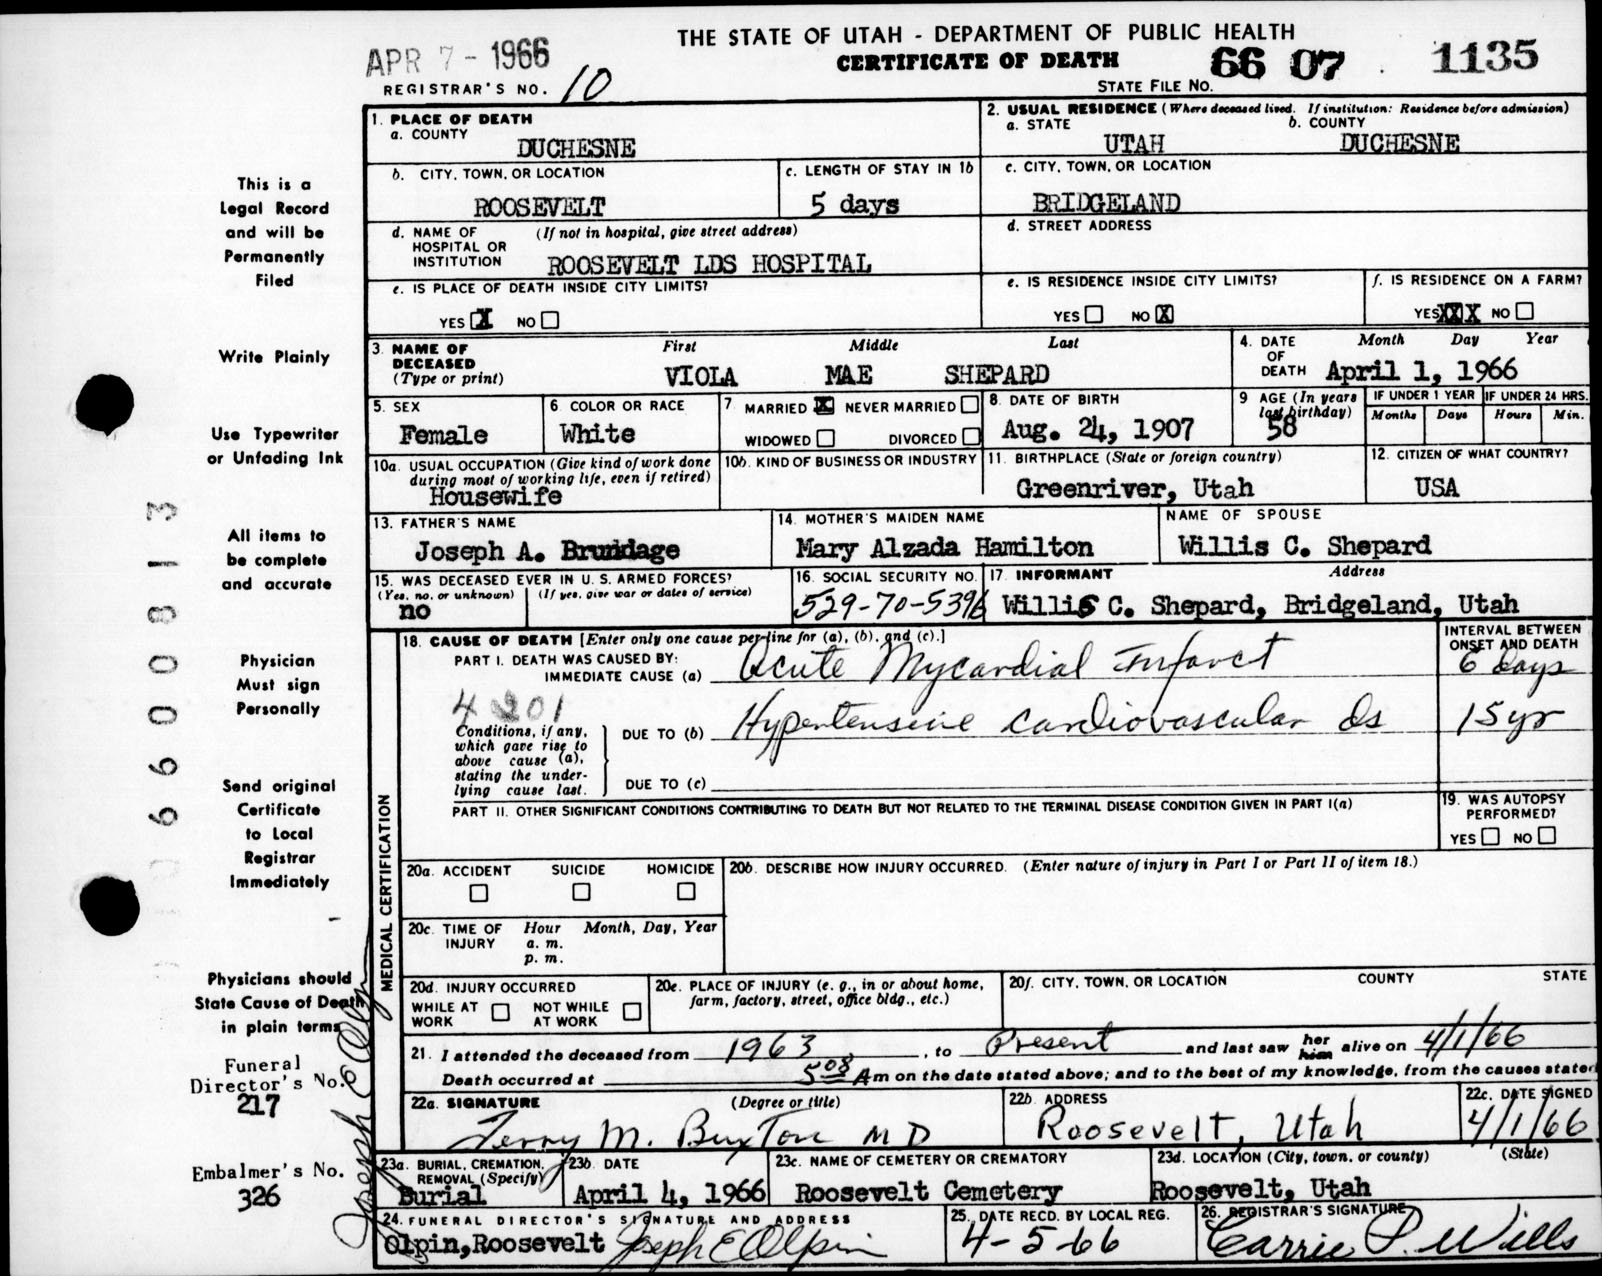 THE STATE OF UTAH - DEPARTMENT OF PUBLIC HEALTH
APR 7 - 1966
CERTIFICATE OF DEATH 66 07 1135
REGISTRAR'S NO. 10
STATE FILE NO.
1. PLACE OF DEATH
a. COUNTY
DUCHESNE
2. USUAL RESIDENCE (Where deceased lived. If institution: Residence before admission)
a. STATE b. COUNTY
UTAH DUCHESNE
b. CITY, TOWN, OR LOCATION
ROOSEVELT
c. LENGTH OF STAY IN 1b
5 days
c. CITY, TOWN, OR LOCATION
BRIDGELAND
d. NAME OF HOSPITAL OR INSTITUTION (If not in hospital, give street address)
ROOSEVELT LDS HOSPITAL
d. STREET ADDRESS
e. IS PLACE OF DEATH INSIDE CITY LIMITS?
YES X NO
e. IS RESIDENCE INSIDE CITY LIMITS?
YES NO X
f. IS RESIDENCE ON A FARM?
YES XX X NO
3. NAME OF DECEASED (Type or print)
First Middle Last
VIOLA MAE SHEPARD
4. DATE OF DEATH
Month Day Year
April 1, 1966
5. SEX
Female
6. COLOR OR RACE
White
7. MARRIED X NEVER MARRIED
WIDOWED DIVORCED
8. DATE OF BIRTH
Aug. 24, 1907
9. AGE (In years last birthday)
58
IF UNDER 1 YEAR
Months Days
IF UNDER 24 HRS.
Hours Min.
10a. USUAL OCCUPATION (Give kind of work done during most of working life, even if retired)
Housewife
10b. KIND OF BUSINESS OR INDUSTRY
11. BIRTHPLACE (State or foreign country)
Greenriver, Utah
12. CITIZEN OF WHAT COUNTRY?
USA
13. FATHER'S NAME
Joseph A. Brundage
14. MOTHER'S MAIDEN NAME
Mary Alzada Hamilton
NAME OF SPOUSE
Willis C. Shepard
15. WAS DECEASED EVER IN U. S. ARMED FORCES?
(Yes, no, or unknown) (If yes, give war or dates of service)
no
16. SOCIAL SECURITY NO.
529-70-5396
17. INFORMANT Address
Willis C. Shepard, Bridgeland, Utah
MEDICAL CERTIFICATION
18. CAUSE OF DEATH [Enter only one cause per line for (a), (b), and (c).]
INTERVAL BETWEEN ONSET AND DEATH
PART I. DEATH WAS CAUSED BY:
IMMEDIATE CAUSE (a) Acute Mycardial Infarct 6 days
4 201
Conditions, if any, which gave rise to above cause (a), stating the underlying cause last.
DUE TO (b) Hypertensive cardiovascular ds 15 yr
DUE TO (c)
PART II. OTHER SIGNIFICANT CONDITIONS CONTRIBUTING TO DEATH BUT NOT RELATED TO THE TERMINAL DISEASE CONDITION GIVEN IN PART I(a)
19. WAS AUTOPSY PERFORMED?
YES NO
20a. ACCIDENT SUICIDE HOMICIDE
20b. DESCRIBE HOW INJURY OCCURRED. (Enter nature of injury in Part I or Part II of item 18.)
20c. TIME OF INJURY Hour Month, Day, Year
a. m.
p. m.
20d. INJURY OCCURRED
WHILE AT WORK NOT WHILE AT WORK
20e. PLACE OF INJURY (e. g., in or about home, farm, factory, street, office bldg., etc.)
20f. CITY, TOWN, OR LOCATION COUNTY STATE
21. I attended the deceased from 1963, to Present and last saw her him alive on 4/1/66
Death occurred at 5 08 Am on the date stated above; and to the best of my knowledge, from the causes stated
22a. SIGNATURE (Degree or title)
Terry M. Buxton MD
22b. ADDRESS
Roosevelt, Utah
22c. DATE SIGNED
4/1/66
23a. BURIAL, CREMATION, REMOVAL (Specify)
Burial
23b. DATE
April 4, 1966
23c. NAME OF CEMETERY OR CREMATORY
Roosevelt Cemetery
23d. LOCATION (City, town, or county) (State)
Roosevelt, Utah
24. FUNERAL DIRECTOR'S SIGNATURE AND ADDRESS
Olpin, Roosevelt Joseph E Olpin
25. DATE RECD. BY LOCAL REG.
4-5-66
26. REGISTRAR'S SIGNATURE
Carrie P. Wills
This is a
Legal Record
and will be
Permanently
Filed
Write Plainly
Use Typewriter
or Unfading Ink
All items to
be complete
and accurate
Physician
Must sign
Personally
Send original
Certificate
to Local
Registrar
Immediately
Physicians should
State Cause of Death
in plain terms
Funeral
Director's No.
217
Embalmer's No.
326
Joseph E Olpin
6600813